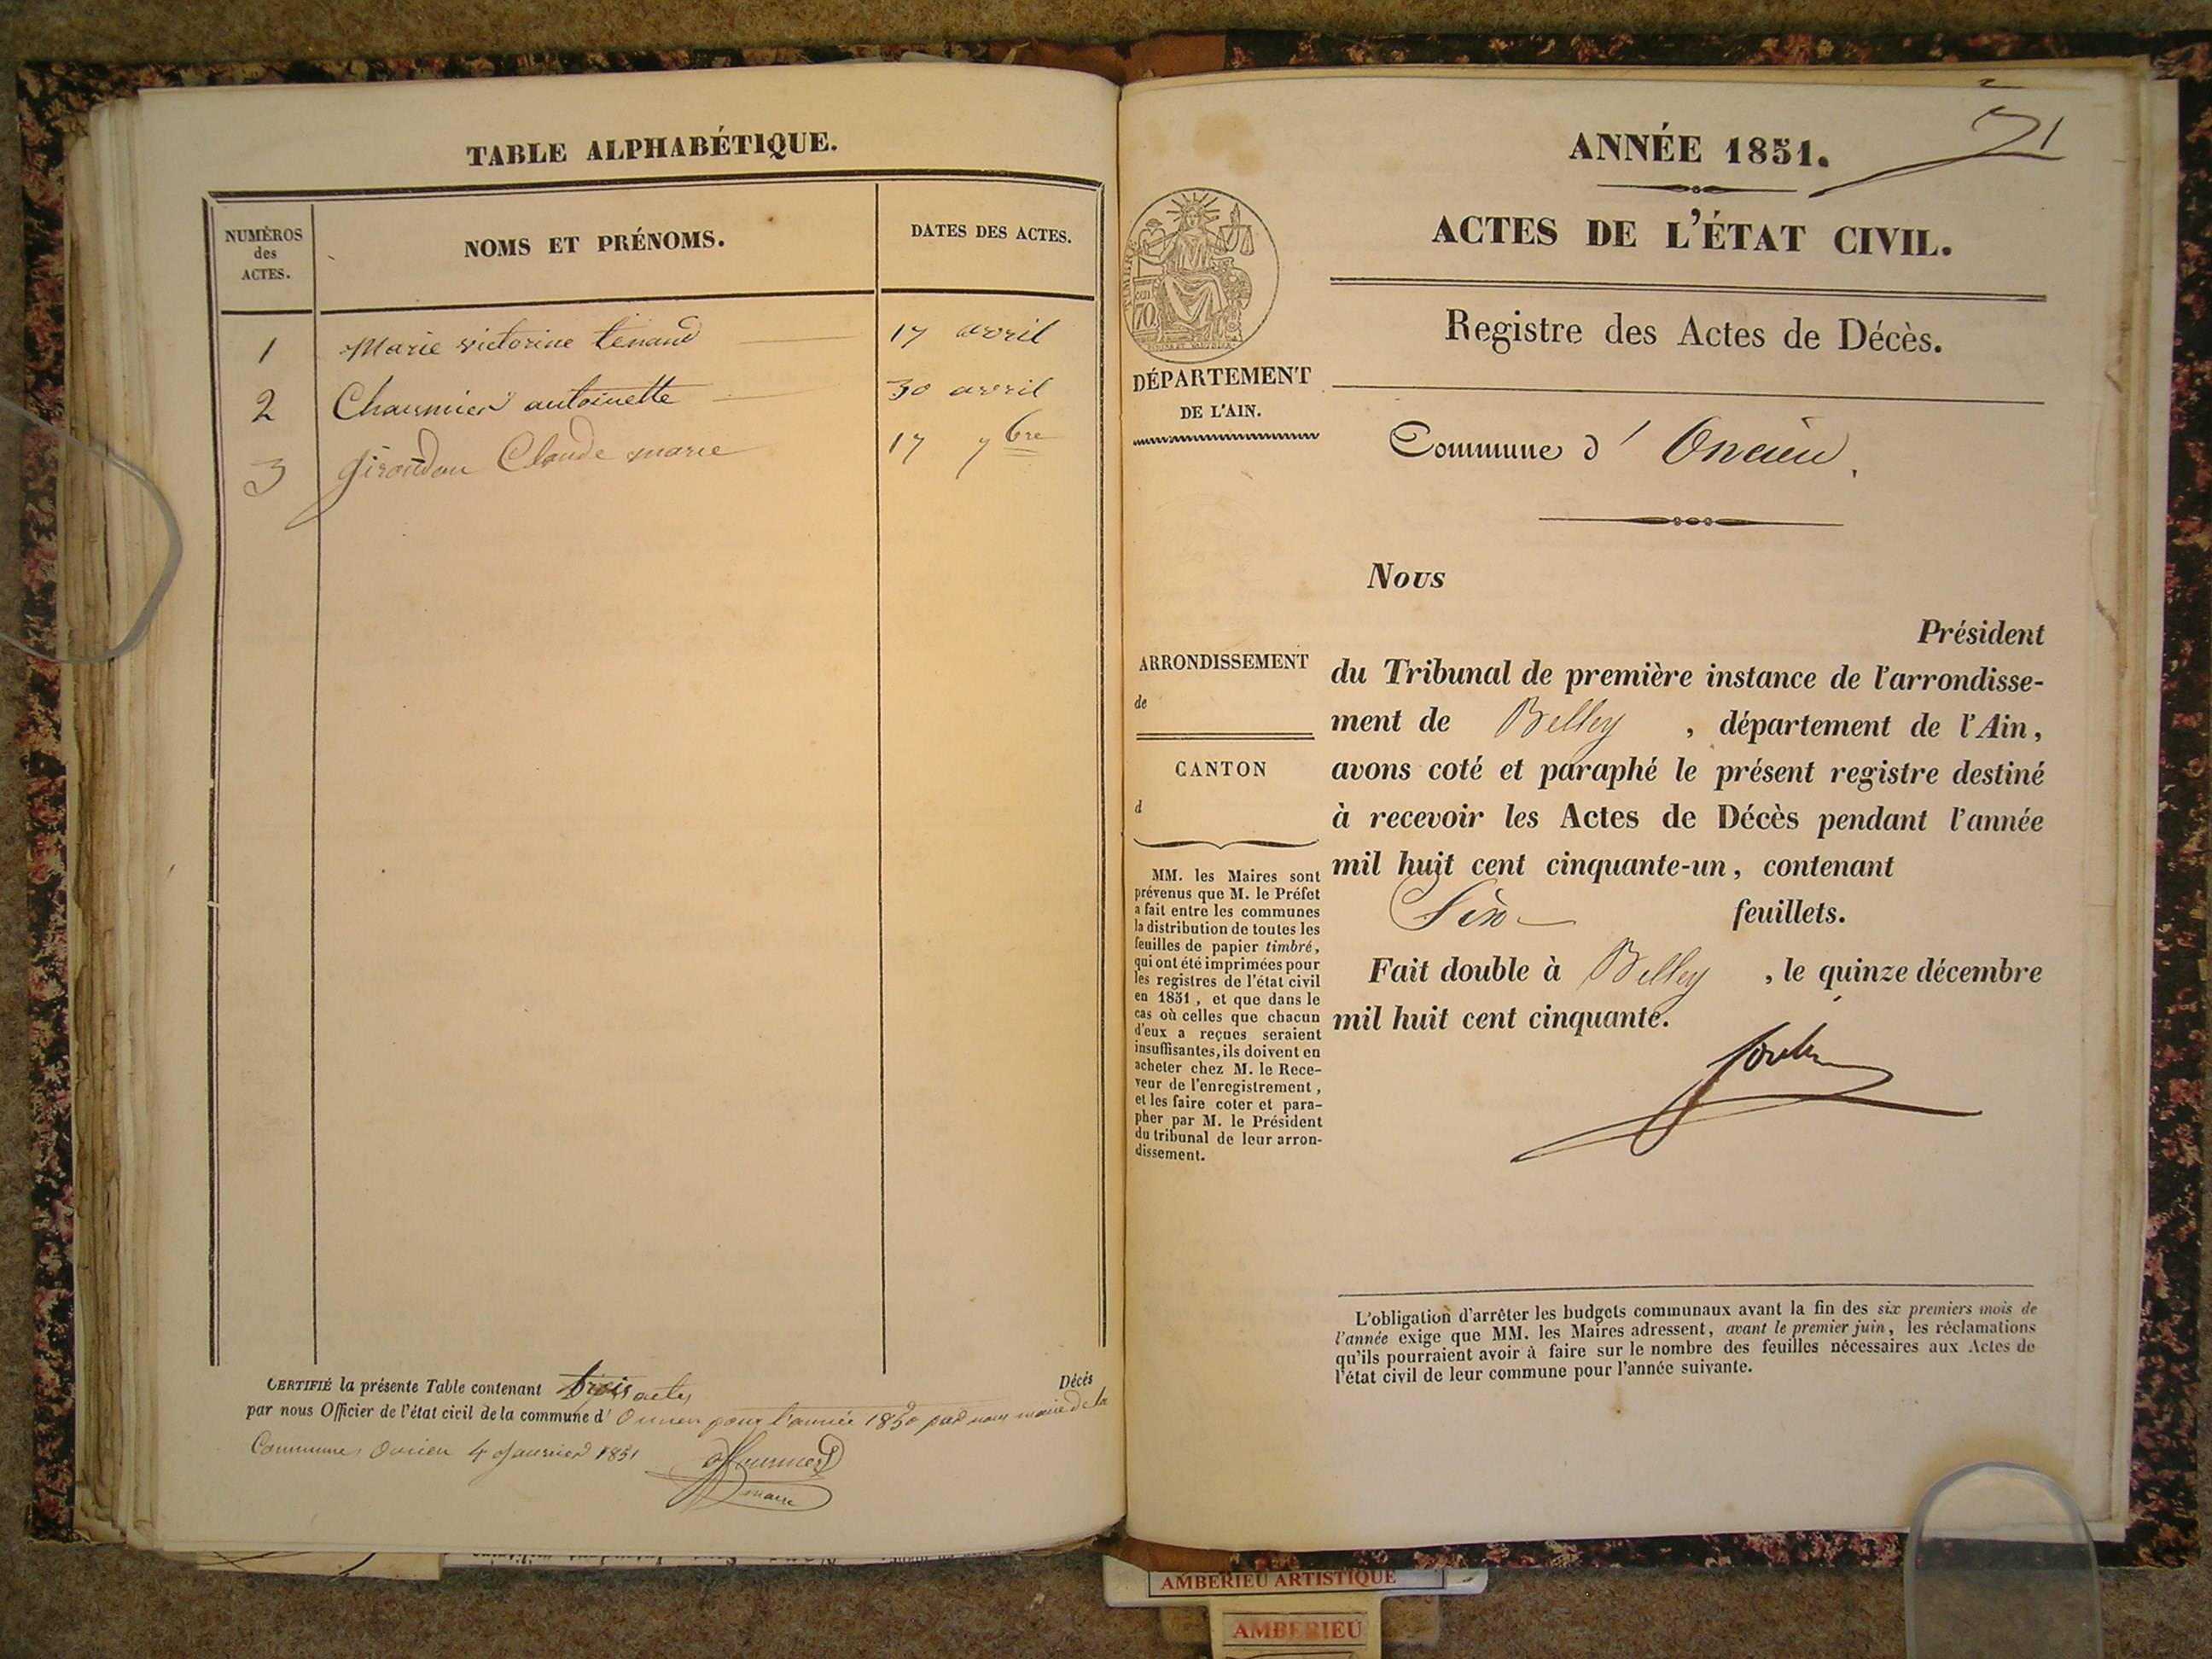 TABLE ALPHABÉTIQUE.
NUMÉROS
des
ACTES.
NOMS ET PRÉNOMS.
DATES DES ACTES.
1 Marie victorine tenand 17 avril
2 Charmier antoinette 30 avril
3 Giroudon Claude marie 17 7bre
CERTIFIÉ la présente Table contenant trois actes Décès
par nous Officier de l'état cicil de la commune d' Oncien pour l'année 1850 par nous maire de la
Commune, Oncien 4 Janvier 1851
maire
71
ANNÉE 1851.
ACTES DE L'ÉTAT CIVIL.
Registre des Actes de Décès.
TIMBRE
70
DÉPARTEMENT
DE L'AIN.
Commune d' Oncieu.
Nous
Président
du Tribunal de première instance de l'arrondisse-
ment de Belley, département de l'Ain,
avons coté et paraphé le présent registre destiné
à recevoir les Actes de Décès pendant l'année
mil huit cent cinquante-un, contenant
Six feuillets.
Fait double à Belley, le quinze décembre
mil huit cent cinquante.
ARRONDISSEMENT
de
CANTON
d
MM. les Maires sont
prévenus que M. le Préfet
a fait entre les communes
la distribution de toutes les
feuilles de papier timbré,
qui ont été imprimées pour
les registres de l'état civil
en 1851, et que dans le
cas où celles que chacun
d'eux a reçues seraient
insuffisantes, ils doivent en
acheter chez M. le Rece-
veur de l'enregistrement,
et les faire coter et para-
pher par M. le Président
du tribunal de leur arron-
dissement.
L'obligation d'arrêter les budgets communaux avant la fin des six premiers mois de
l'année exige que MM. les Maires adressent, avant le premier juin, les réclamations
qu'ils pourraient avoir à faire sur le nombre des feuilles nécessaires aux Actes de
l'état civil de leur commune pour l'année suivante.
AMBERIEU ARTISTIQUE
AMBERIEU